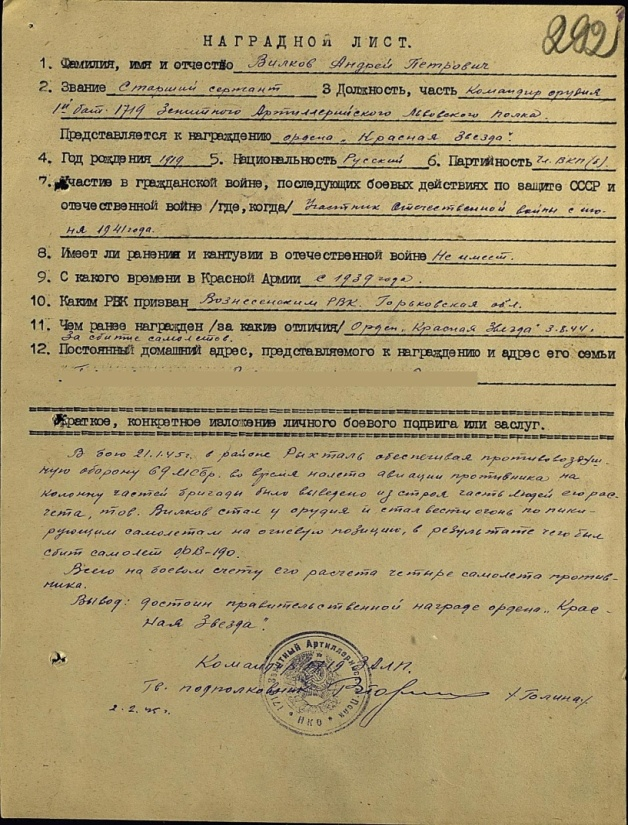 292
НАГРАДНОЙ ЛИСТ.
1. Фамилия, имя и отчество Вилков Андрей Петрович
2. Звание Старший сержант 3 Должность, часть Командир орудия
1й бат. 1719 Зенитного Артиллерийского Львовского Полка.
Представляется к награждению ордена „Красная Звезда".
4. Год рождения 1919 5. Национальность Русский 6. Партийность Чл. ВКП(б)
7. Участие в гражданской войне, последующих боевых действиях по защите СССР и
отечественной войне /где, когда/ Участник Отечественной войны с ию-
ня 1941 года.
8. Имеет ли ранения и кантузии в отечественной войне Не имеет.
9. С какого времени в Красной Армии с 1939 года.
10. Каким РВК призван Вознесенским РВК. Горьковская обл.
11. Чем ранее награжден /за какие отличия/ Орден „Красная Звезда" 3.8.44.
За сбитие самолетов.
12. Постоянный домашний адрес, представляемого к награждению и адрес его семьи
Краткое, конкретное изложение личного боевого подвига или заслуг.
В бою 21.1.45г. в районе Рыхталь обеспечивая противовоздуш-
ную оборону 69 МСбр. во время налета авиации противника на
колонну частей бригады было выведено из строя часть людей его рас-
чета, тов. Вилков стал у орудия и стал вести огонь по пики-
рующим самолетам на огневую позицию, в результате чего был
сбит самолет ФВ-190.
Всего на боевом счету его расчета четыре самолета против-
ника.
Вывод: достоин правительственной награде ордена „Крас-
ная Звезда".
Командир 1719 ЗАЛП.
Гв. подполковник /Голица/
2.2.45г.
1719 Зенитный Артиллерийск. Полк
НКО